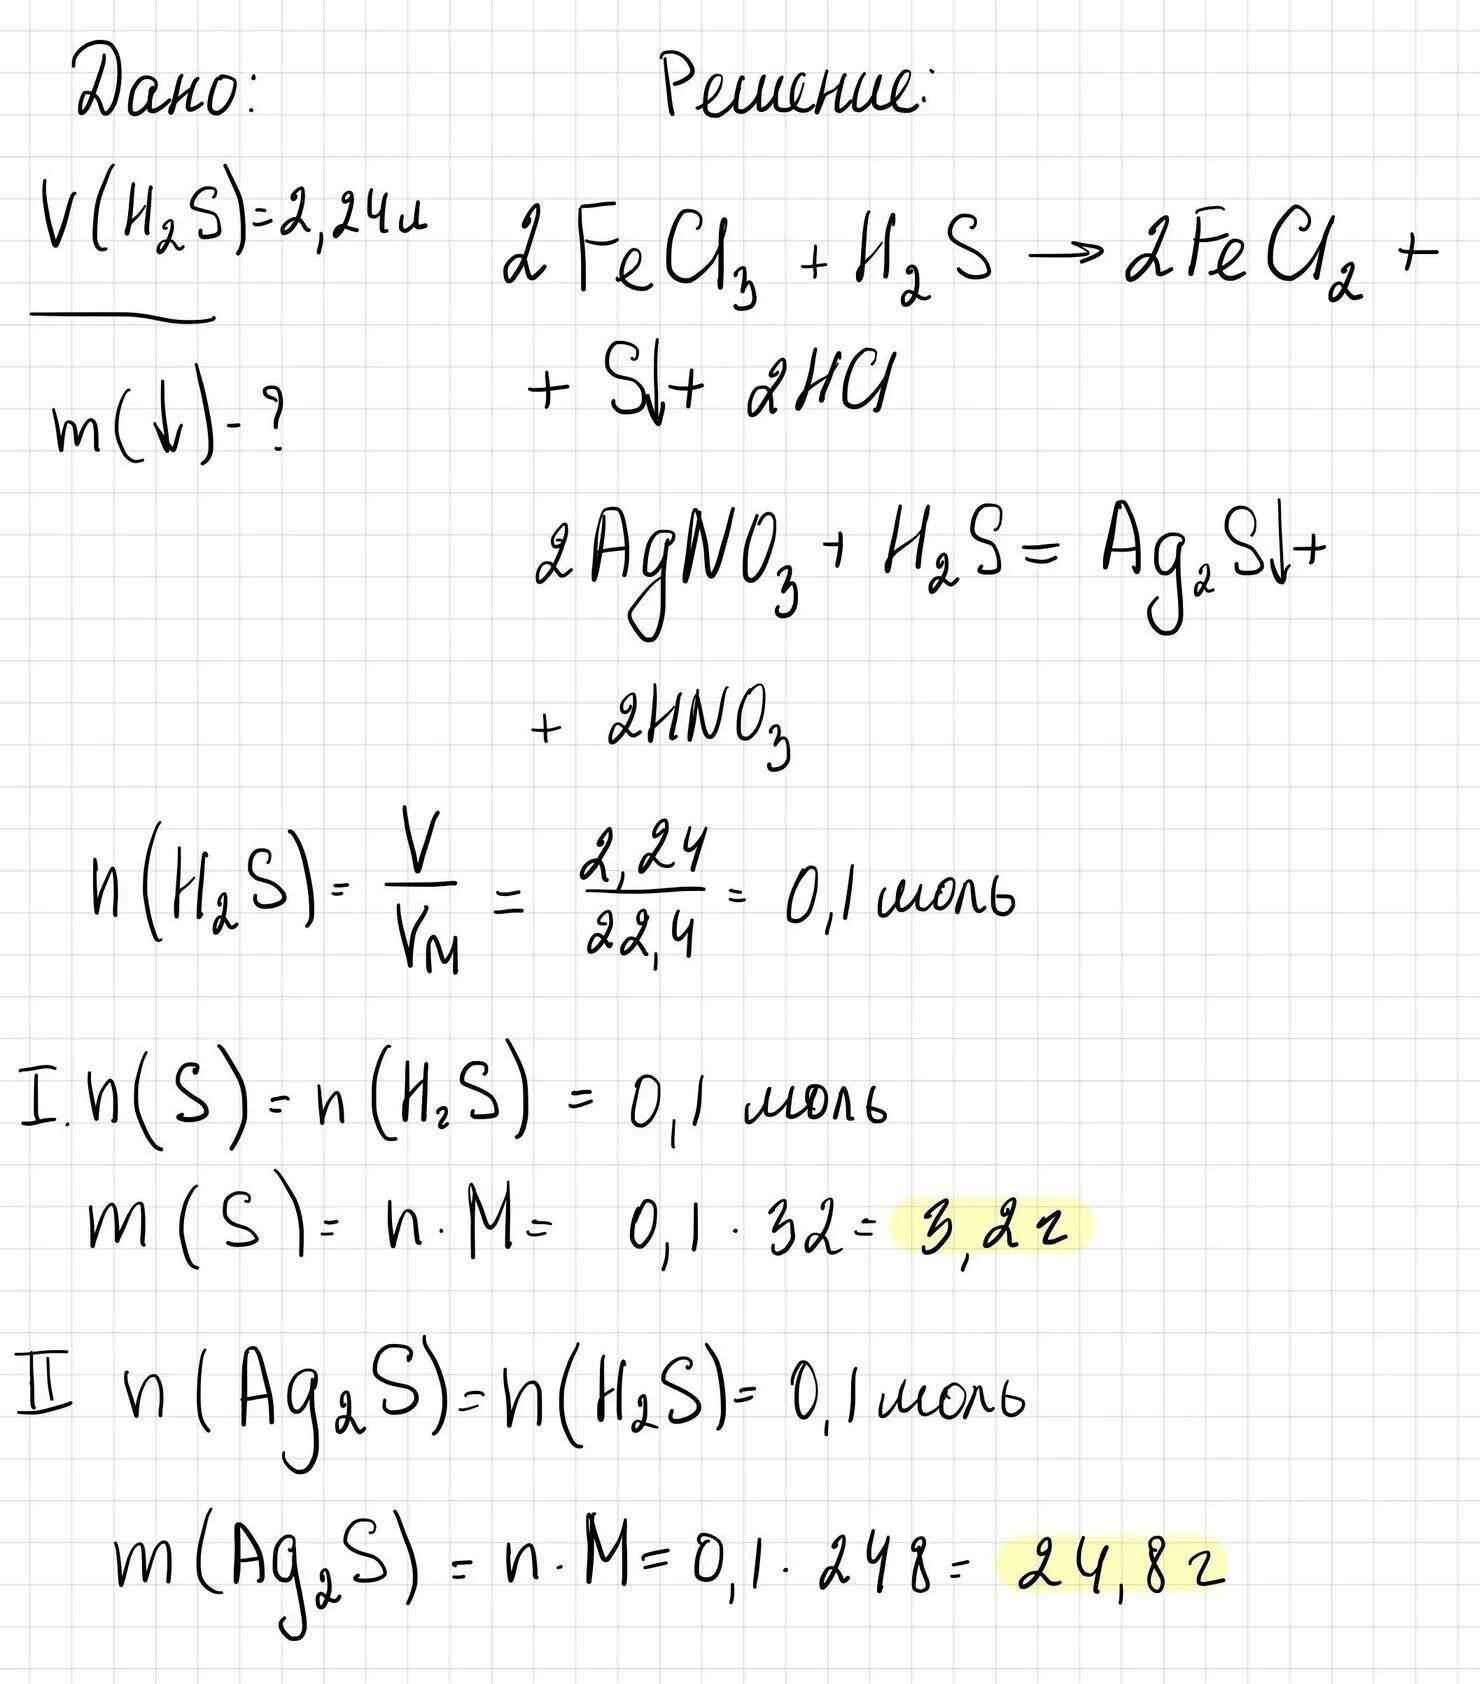 Дано:
Решение:
V(H₂S)=2,24л
m(↓)-?
2FeCl₃ + H₂S → 2FeCl₂ +
+ S↓+ 2HCl
2AgNO₃ + H₂S = Ag₂S↓+
+ 2HNO₃
n(H₂S)= V/Vм = 2,24/22,4 = 0,1 моль
I. n(S)= n(H₂S) = 0,1 моль
m(S)= n·M= 0,1·32= 3,2г
II n(Ag₂S)=n(H₂S)= 0,1 моль
m(Ag₂S) = n·M=0,1·248= 24,8г